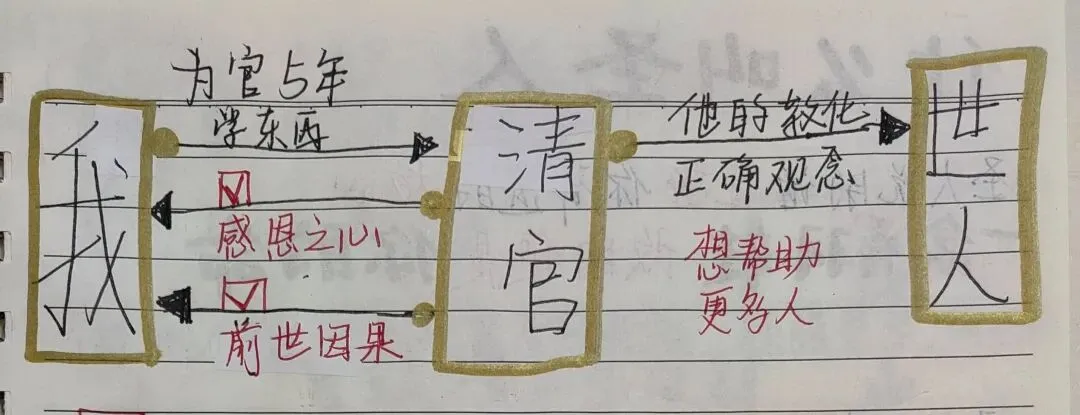 为官5年
学东西
他的教化
正确观念
我
清官
世人
☑
感恩之心
☑
前世因果
想帮助
更多人